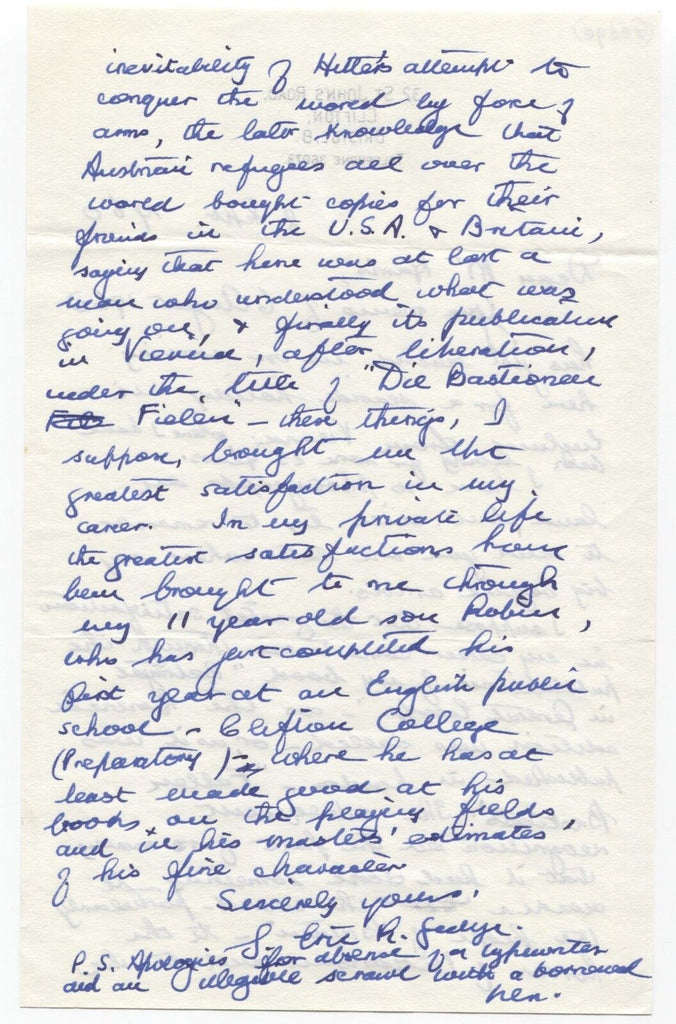 inevitability of Hitler's attempt to
conquer the world by force of
arms, the later knowledge that
Austrian refugees all over the
world bought copies for their
friends in the U.S.A. & Britain,
saying that here was at last a
man who understood what was
going on, & finally its publication
in Vienna, after liberation,
under the title of "Die Bastionen
Fielen" – these things, I
suppose, brought me the
greatest satisfaction in my
career. In my private life
the greatest satisfactions have
been brought to me through
my 11 year old son Robin,
who has just completed his
first year at an English public
school – Clifton College
(Preparatory) – where he has at
least made good at his
books on the playing fields,
and in his masters' estimates
of his fine character.
Sincerely yours,
G. Eric R. Gedye.
P.S. Apologies for absence of a typewriter
and an illegible scrawl with a borrowed
pen.
32 ST. JOHNS ROAD,
CLIFTON,
BRISTOL, 8.
(Gedye)